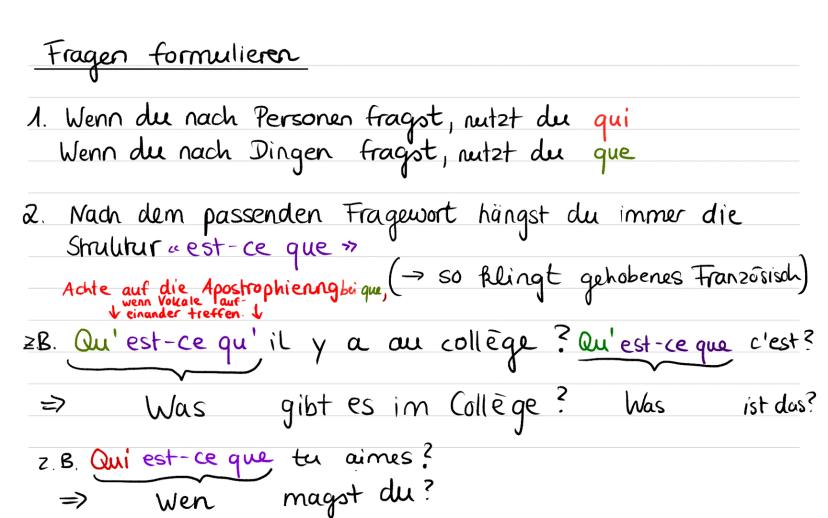 Fragen formulieren
1. Wenn du nach Personen fragst, nutzt du qui
Wenn du nach Dingen fragst, nutzt du que
2. Nach dem passenden Fragewort hängst du immer die
Struktur « est-ce que »
(→ so klingt gehobenes Französisch)
Achte auf die Apostrophierung bei que,
wenn Vokale auf-
↓ einander treffen. ↓
zB. Qu'est-ce qu'il y a au collège ? Qu'est-ce que c'est?
⇒ Was gibt es im Collège ? Was ist das?
z.B. Qui est-ce que tu aimes?
⇒ Wen magst du ?